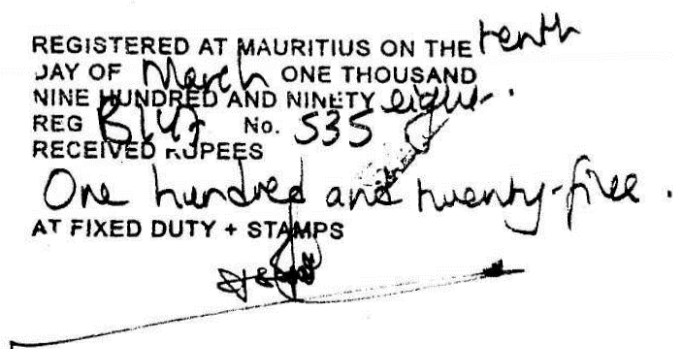 REGISTERED AT MAURITIUS ON THE tenth
DAY OF March ONE THOUSAND
NINE HUNDRED AND NINETY eight.
REG No. 535
RECEIVED RUPEES
One hundred and twenty-five.
AT FIXED DUTY + STAMPS